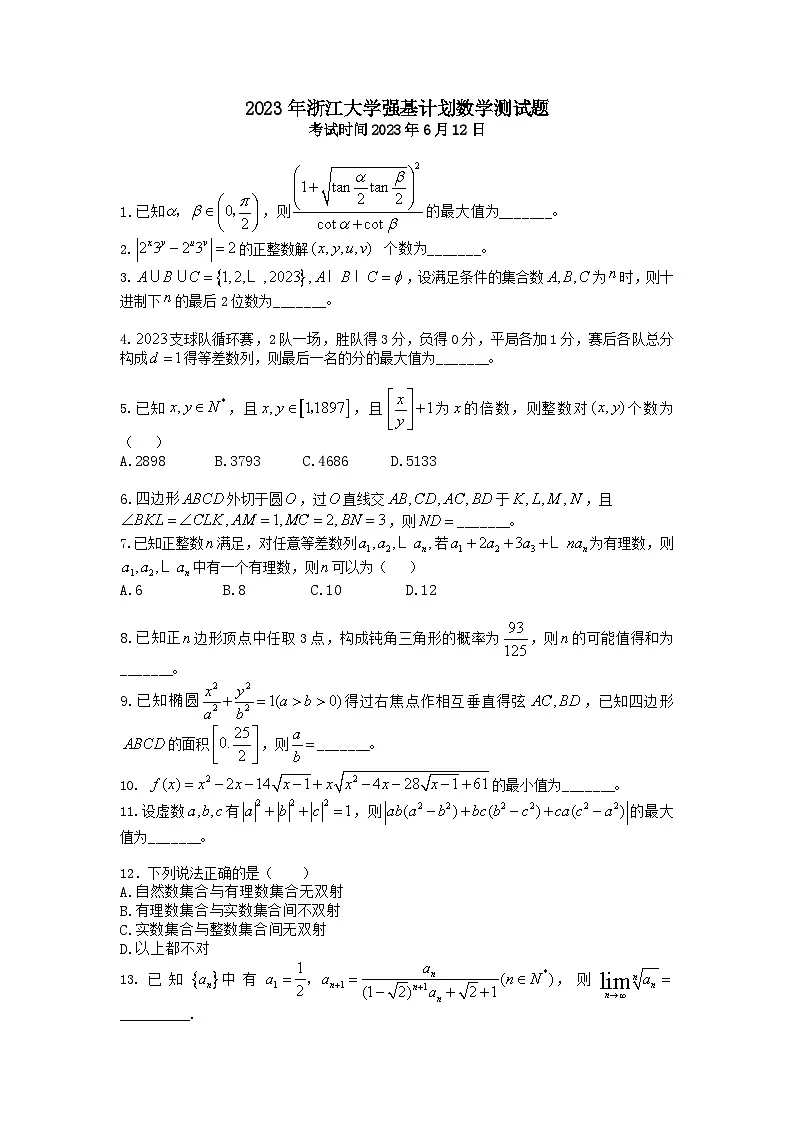 2023年浙江大学强基计划数学测试题
考试时间2023年6月12日
1.已知α, β∈(0, π/2),则(1+√(tan α/2 tan β/2))²/(cot α+cot β)的最大值为_______。
2.|2^x3^y − 2^u3^v| = 2的正整数解(x, y, u, v) 个数为_______。
3. A∪B∪C = {1,2,L ,2023}, A∣ B∣ C = ϕ,设满足条件的集合数A, B, C为n时,则十
进制下n的最后2位数为_______。
4.2023支球队循环赛,2队一场,胜队得3分,负得0分,平局各加1分,赛后各队总分
构成d = 1得等差数列,则最后一名的分的最大值为_______。
5.已知x, y∈N*,且x, y∈[1,1897],且[x/y]+1为x的倍数,则整数对(x, y)个数为
( )
A.2898 B.3793 C.4686 D.5133
6.四边形ABCD外切于圆O,过O直线交AB, CD, AC, BD于K, L, M, N,且
∠BKL = ∠CLK, AM = 1, MC = 2, BN = 3,则ND = _______。
7.已知正整数n满足,对任意等差数列a₁, a₂, L a_n,若a₁ + 2a₂ + 3a₃ + L na_n为有理数,则
a₁, a₂, L a_n中有一个有理数,则n可以为( )
A.6 B.8 C.10 D.12
8.已知正n边形顶点中任取3点,构成钝角三角形的概率为93/125,则n的可能值得和为
_______。
9.已知椭圆x²/a² + y²/b² = 1(a > b > 0)得过右焦点作相互垂直得弦AC, BD,已知四边形
ABCD的面积[0. 25/2],则a/b = _______。
10. f(x) = x² − 2x − 14√(x−1) + x√(x² − 4x − 28√(x−1) + 61)的最小值为_______。
11.设虚数a, b, c有|a|² + |b|² + |c|² = 1,则|ab(a² − b²) + bc(b² − c²) + ca(c² − a²)|的最大
值为_______。
12. 下列说法正确的是( )
A.自然数集合与有理数集合无双射
B.有理数集合与实数集合间不双射
C.实数集合与整数集合间无双射
D.以上都不对
13. 已知{a_n}中有a₁ = 1/2, a_{n+1} = a_n/((1−√2)^{n+1}a_n + √2 + 1)(n∈N*), 则 lim_{n→∞} ⁿ√a_n =
_________.